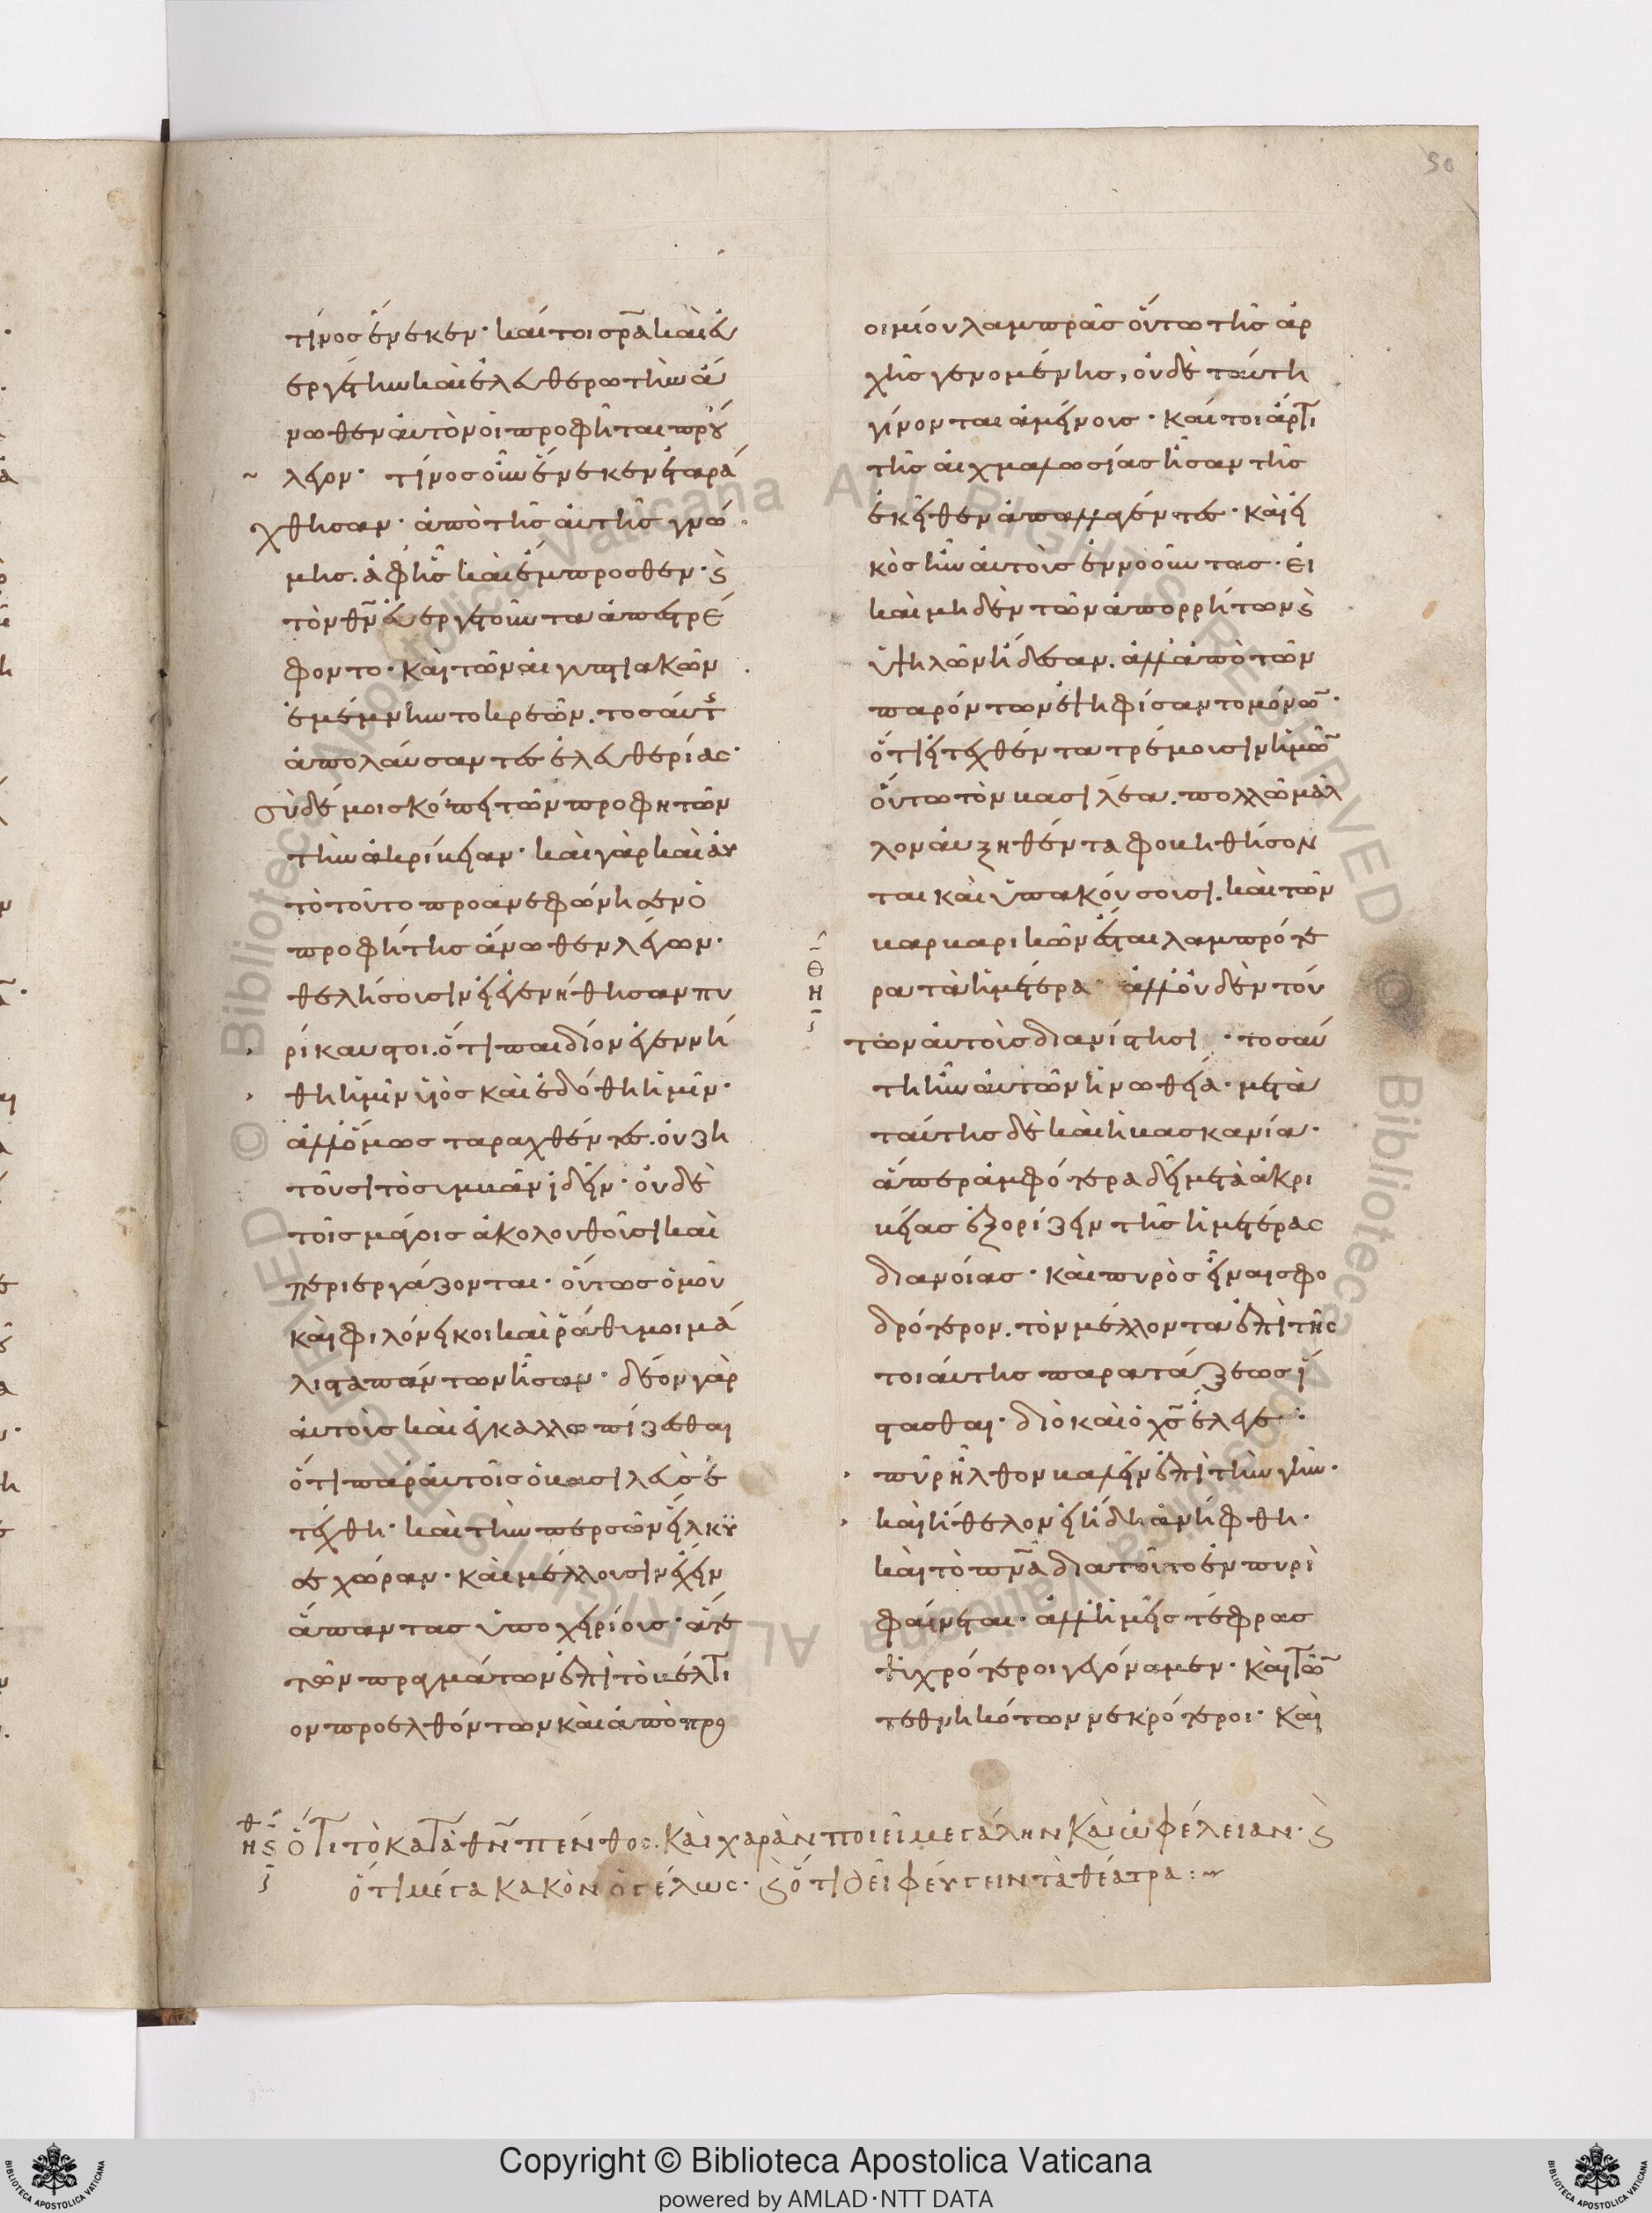 50
τίνος ἕνεκεν· καίτοι σρα καὶ εὐ
εργέτην καὶ ἐλευθερωτὴν ἄ
νωθεν αὐτὸν οἱ προφῆται πρού
λεγον· τίνος οὖν ἕνεκεν ἐταρά
χθησαν· ἀπὸ τῆς αὐτῆς γνώ
μης. ἀφ' ἧς καὶ ἔμπροσθεν· ϗ
τὸν θν εὐεργετοῦντα ἀπεστρέ
φοντο· καὶ τῶν αἰγυπτιακῶν
ἐμέμνηντο κρεῶν. τοσαύτης
ἀπολαύσαντες ἐλευθερίας·
σὺ δέ μοι σκόπει τῶν προφητῶν
τὴν ἀκρίβειαν· καὶ γὰρ καὶ αὐ
τὸ τοῦτο προανεφώνησεν ὁ
προφήτης ἄνωθεν λέγων·
θελήσουσιν εἰ ἐγενήθησαν πυ
ρίκαυστοι. ὅτι παιδίον ἐγεννή
θη ἡμῖν υἱὸς καὶ ἐδόθη ἡμῖν·
ἀλλ' ὅμως ταραχθέντες. οὐ ζη
τοῦσι τὸ συμβὰν ἰδεῖν· οὐδὲ
τοῖς μάγοις ἀκολουθοῦσι καὶ
περιεργάζονται· οὕτως ὁμοῦ
καὶ φιλόνεικοι καὶ ῥάθυμοι μά
λιστα πάντων ἦσαν· δέον γὰρ
αὐτοὺς καὶ ἐγκαλλωπίζεσθαι
ὅτι παρ' αὐτοῖς ὁ βασιλεὺς ἐ
τέχθη· καὶ τὴν περσῶν εἵλκυ
σε χώραν· καὶ μέλλουσιν ἔχειν
ἅπαντας ὑποχειρίους· ἅτε
τῶν πραγμάτων ἐπὶ τὸ βέλτι
ον προελθόντων καὶ ἀπὸ προ
οιμίου λαμπρᾶς οὕτω τῆς ἀρ
χῆς γενομένης, οὐδὲ ταύτη
γίνονται ἀμείνους· καίτοι ἄρτι
τῆς αἰχμαλωσίας ἦσαν τῆς
ἐκεῖθεν ἀπαλλαγέντες· καὶ εἰ
κὸς ἦν αὐτοὺς ἐννοοῦντας· εἰ
καὶ μηδὲν τῶν ἀπορρήτων ϗ
ὑψηλῶν ᾔδεσαν. ἀλλ' ἀπὸ τῶν
παρόντων ἐψηφίσαντο μόνων·
ὅτι εἰ τεχθέντα τρέμουσιν ἡμῶν
οὕτω τὸν βασιλέα. πολλῶ μᾶλ
λον αὐξηθέντα φοβηθήσον
ται καὶ ὑπακούσουσι. καὶ τῶν
βαρβαρικῶν ἔσται λαμπρότε
ρα τὰ ἡμέτερα· ἀλλ' οὐδὲν τού
των αὐτοὺς διανίστησι· τοσαύ
τη ἦν αὐτῶν ἡ νωθεία· μετὰ
ταύτης δὲ καὶ ἡ βασκανία·
ἅπερ ἀμφότερα δεῖ μετὰ ἀκρι
βείας ἐξορίζειν τῆς ἡμετέρας
διανοίας· καὶ πυρὸς εἶναι σφο
δρότερον. τὸν μέλλοντα ἐπὶ τῆς
τοιαύτης παρατάξεως ἵ
στασθαι· διὸ καὶ ὁ χς ἔλεγε·
πῦρ ἦλθον βαλεῖν ἐπὶ τὴν γῆν·
καὶ ἤθελον εἰ ἤδη ἀνήφθη·
καὶ τὸ πνα διατοῦτο ἐν πυρὶ
φαίνεται· ἀλλ' ἡμεῖς τέφρας
ψυχρότεροι γεγόναμεν· καὶ τῶν
τεθνηκότων νεκρότεροι· καὶ
ὅτι τὸ κατὰ θν πένθος. καὶ χαρὰν ποιεῖ μεγάλην καὶ ὠφέλειαν· ϗ
ὅτι μέγα κακὸν ὁ γέλως· ϗ ὅτι δεῖ φεύγειν τὰ θέατρα:~
Copyright © Biblioteca Apostolica Vaticana
powered by AMLAD·NTT DATA